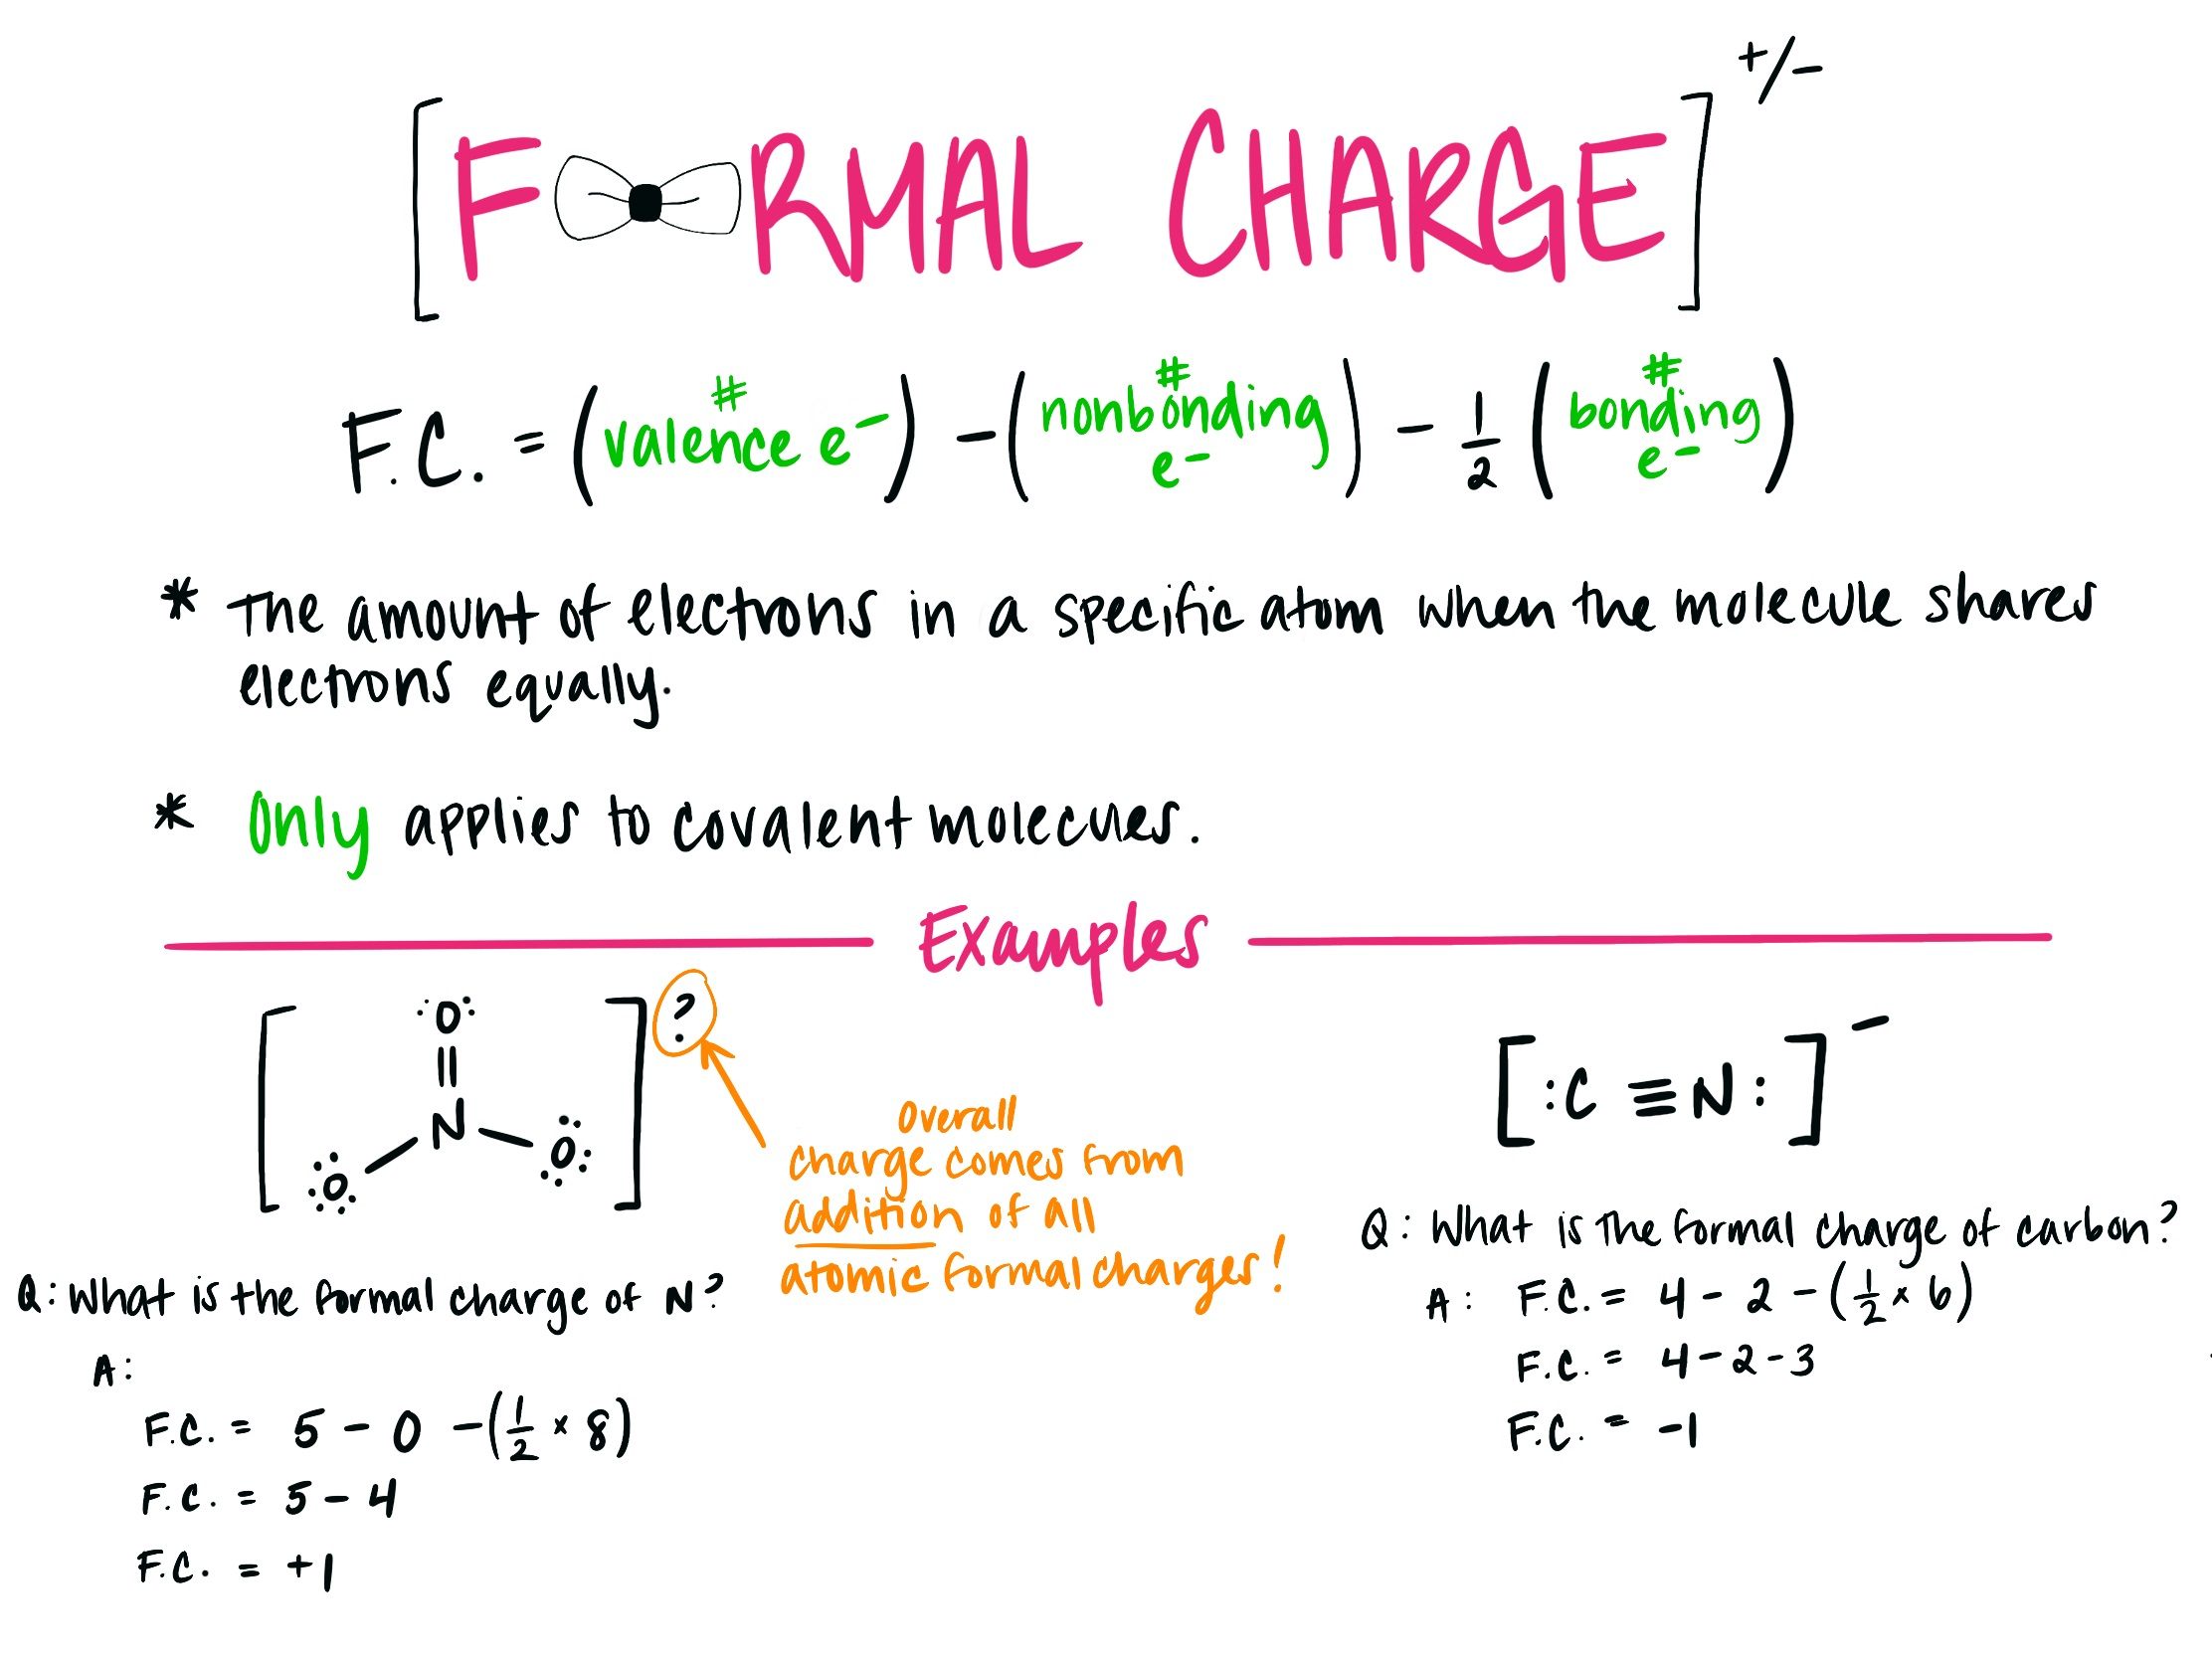 [FORMAL CHARGE]+/-
F.C. = (# valence e-) - (# nonbonding e-) - 1/2 (# bonding e-)
* The amount of electrons in a specific atom when the molecule shares
electrons equally.
* Only applies to covalent molecules.
Examples
[:O: = N - O - O]?
Overall
charge comes from
addition of all
atomic formal charges!
Q: What is the formal charge of N?
A:
F.C. = 5 - 0 - (1/2 × 8)
F.C. = 5 - 4
F.C. = +1
[:C≡N:]-
Q: What is the formal charge of carbon?
A: F.C. = 4 - 2 - (1/2 × 6)
F.C. = 4 - 2 - 3
F.C. = -1